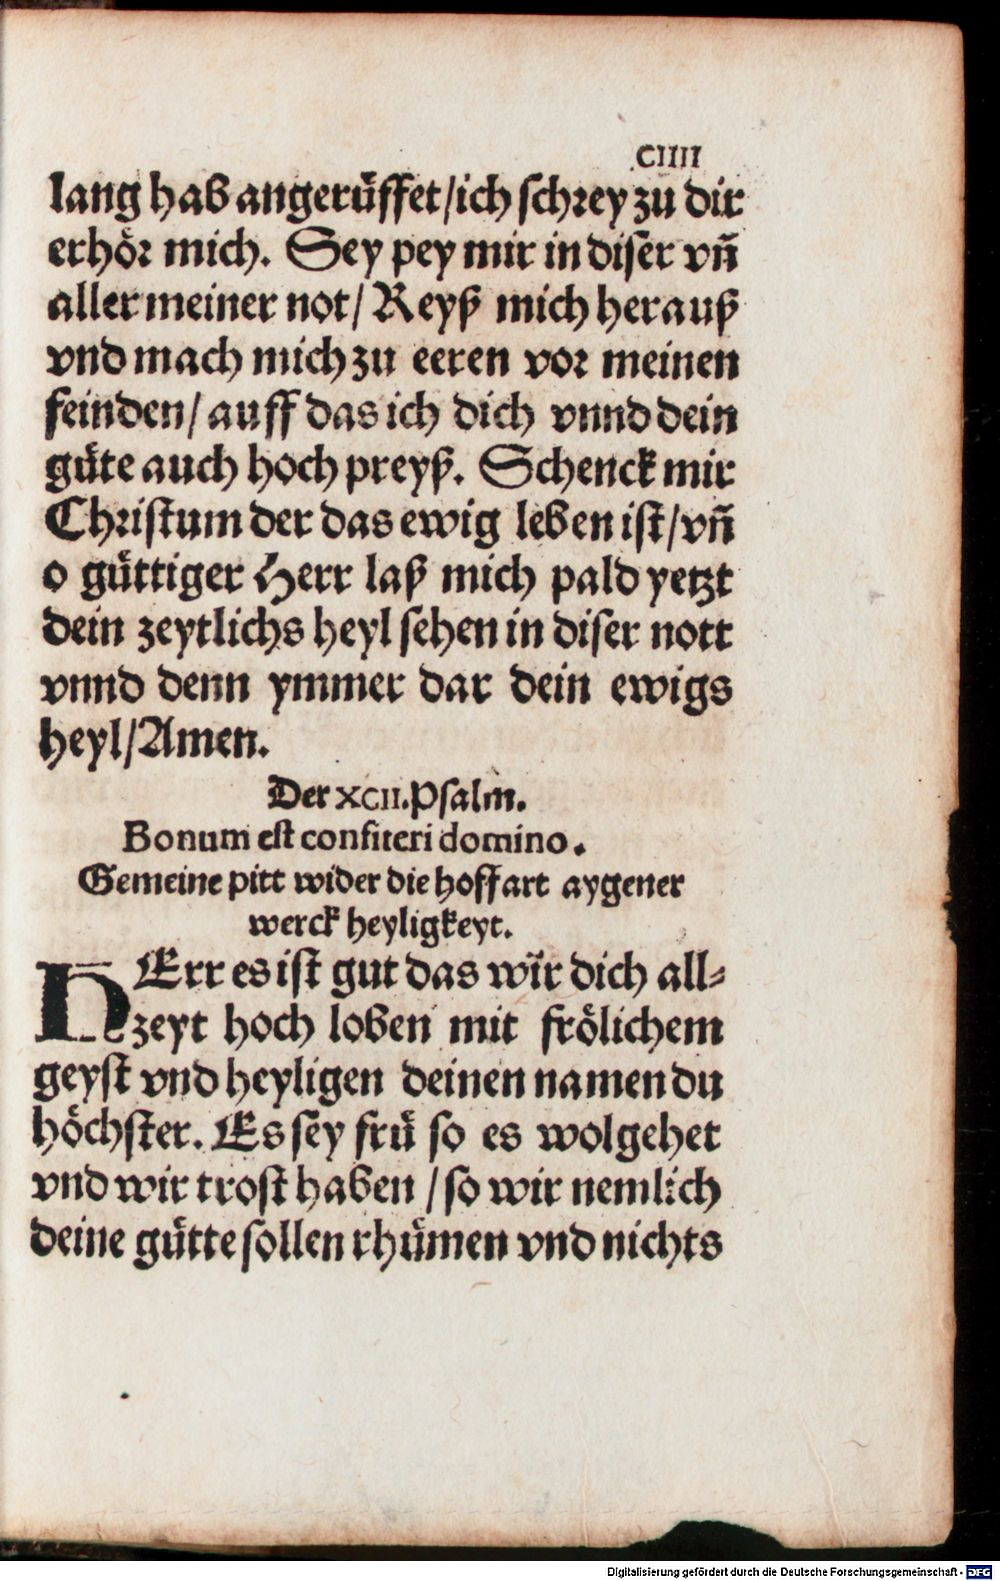 CIIII
lang hab angerůffet/ich schrey zu dir
erhör mich. Sey pey mir in diser vñ
aller meiner not/ Reyß mich herauß
vnd mach mich zu eeren vor meinen
feinden/ auff das ich dich vnnd dein
gůte auch hoch preyß. Schenck mir
Christum der das ewig leben ist/vñ
o gůttiger Herr laß mich pald yetzt
dein zeytlichs heyl sehen in diser nott
vnnd denn ymmer dar dein ewigs
heyl/Amen.
Der XCII. Psalm.
Bonum est confiteri domino.
Gemeine pitt wider die hoffart aygener
werck heyligkeyt.
HErr es ist gut das wir dich all⸗
zeyt hoch loben mit frölichem
geyst vnd heyligen deinen namen du
höchster. Es sey frů so es wolgehet
vnd wir trost haben / so wir nemlich
deine gůtte sollen rhůmen vnd nichts
Digitalisierung gefördert durch die Deutsche Forschungsgemeinschaft - DFG